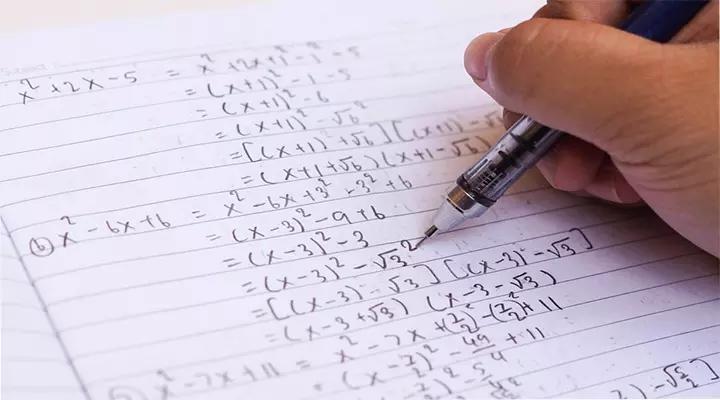 x² + 2x - 5 = x² + 2x + 1 - 1² - 5
= (x+1)² - 1 - 5
= (x+1)² - 6
= (x+1)² - √6²
= [(x+1) + √6] [(x+1) - √
= (x+1+√6)(x+1-√6)
(b) x² - 6x + 6 = x² - 6x + 3² - 3² + 6
= (x-3)² - 9 + 6
= (x-3)² - 3
= (x-3)² - √3²
= [(x-3) - √3] [(x-3) - √3]
= (x-3+√3) (x-3-√3)
x² - 7x + 11 = x² - 7x + (7/2)² - (7/2)² + 11
= (x - 7/2)² - 49/4 + 11